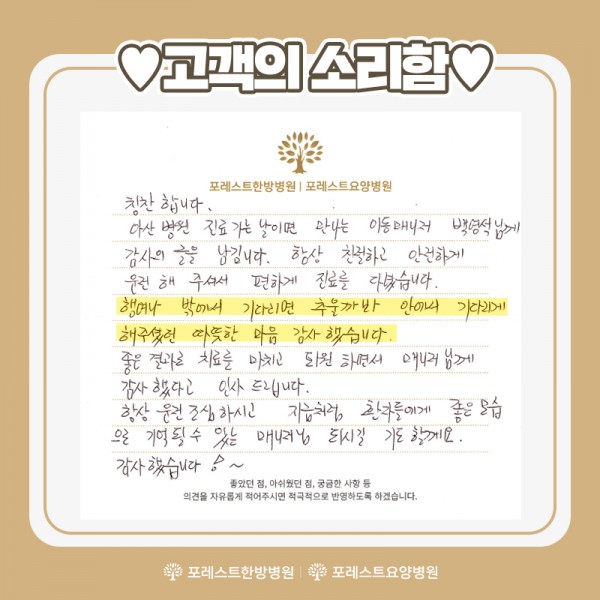 ♥고객의 소리함♥
포레스트한방병원 | 포레스트요양병원
칭찬 합니다.
아산병원 진료 가는 날이면 만나는 이동매니저 백영석님께
감사의 글을 남깁니다. 항상 친절하고 안전하게
운전 해 주셔서 편하게 진료를 다녔습니다.
행여나 밖에서 기다리면 추울까봐 안에서 기다리게
해주셨던 따뜻한 마음 감사했습니다.
좋은 결과로 치료를 마치고 퇴원 하면서 매니저님께
감사했다고 인사 드립니다.
항상 운전 조심하시고 지금처럼 환자들에게 좋은 모습
으로 기억될 수 있는 매니저님 되시길 기도 할게요.
감사했습니다 !~
좋았던 점, 아쉬웠던 점, 궁금한 사항 등
의견을 자유롭게 적어주시면 적극적으로 반영하도록 하겠습니다.
포레스트한방병원 | 포레스트요양병원